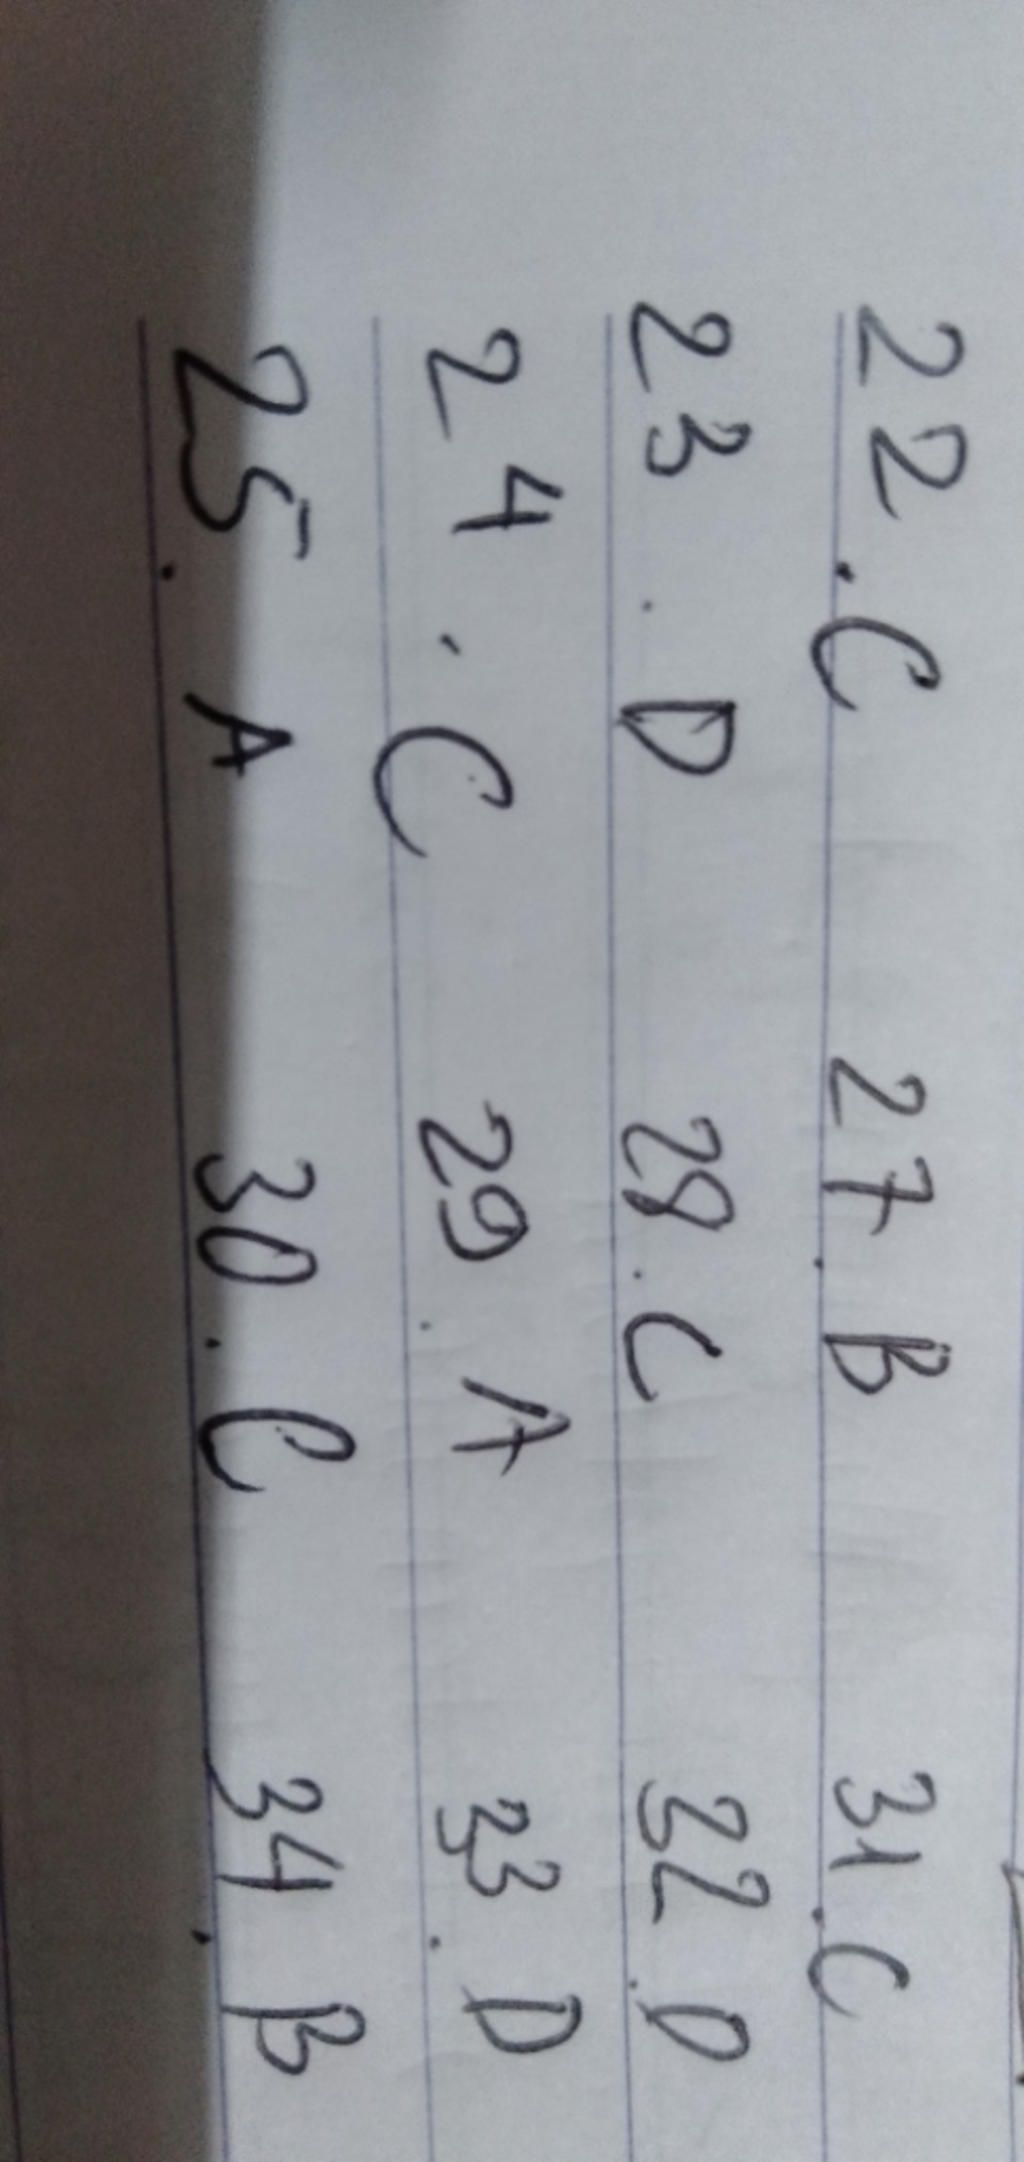 22. C 27. B 31. C
23. D 28. C 32. D
24. C 29. A 33. D
25. A 30. C 34. B